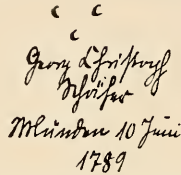 c c
c
Georg Christoph
Schäfer
Münden 10 Juni
1789